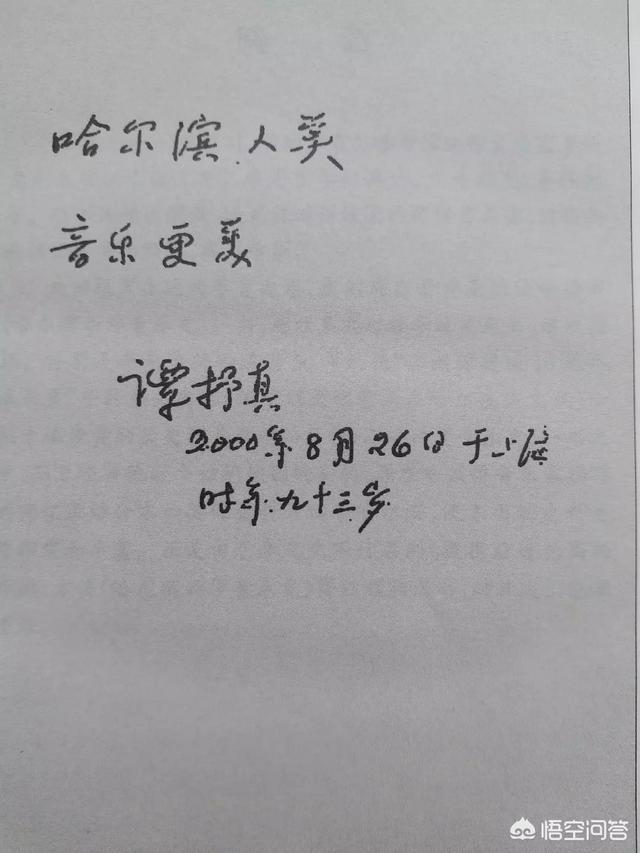 哈尔滨人美
音乐更美
谭抒真
2000年8月26日于上海
时年九十三岁
悟空问答